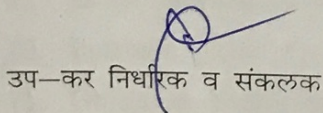 उप–कर निर्धारक व संकलक